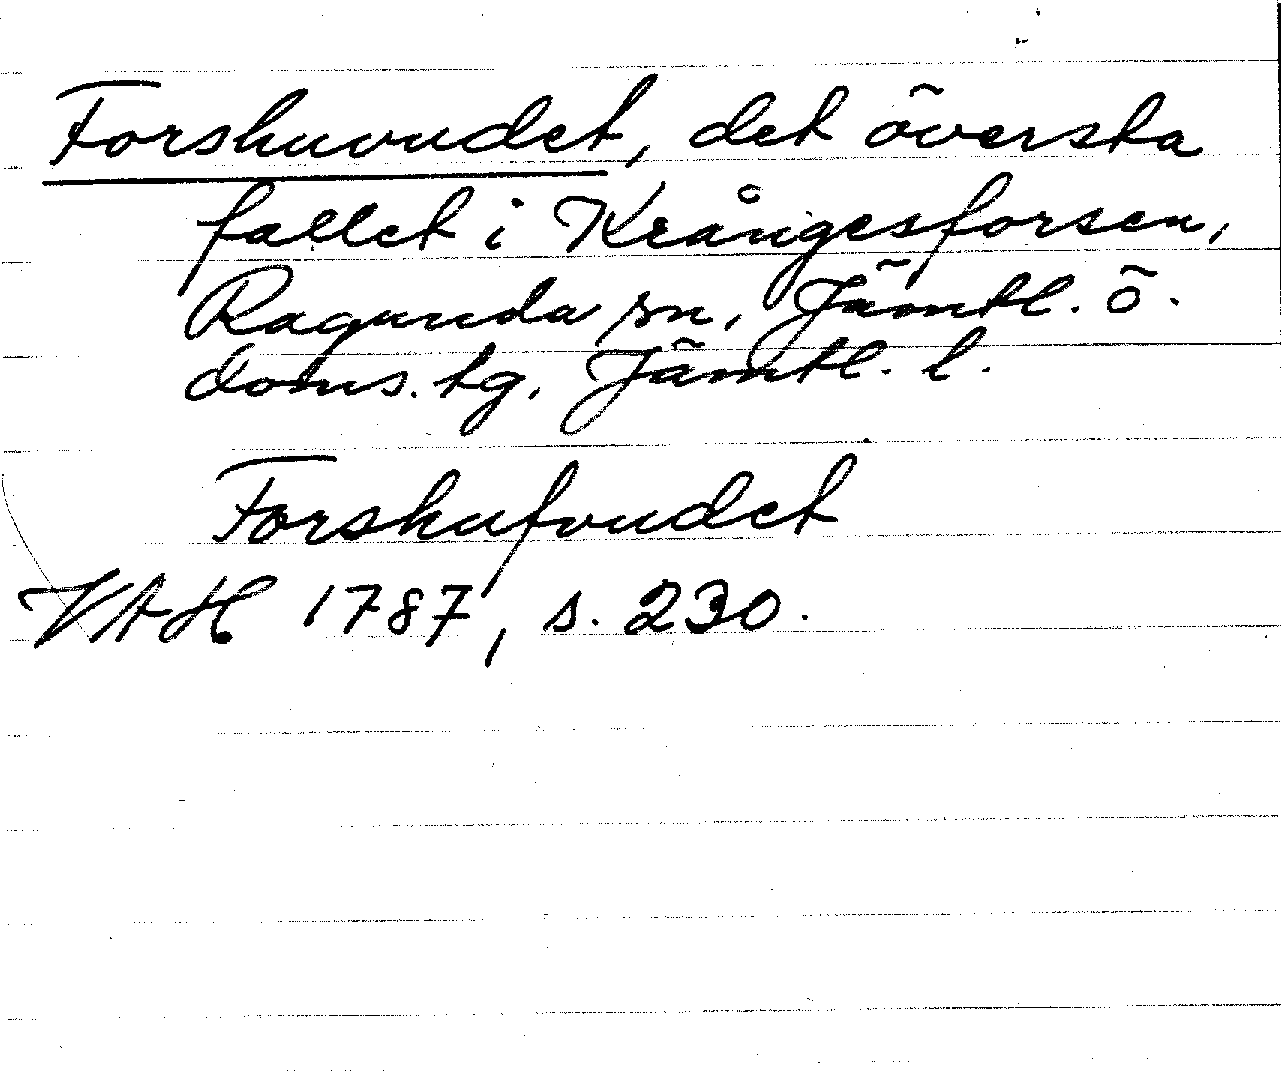 Forshuvudet, det översta
fallet i Krångesforsen,
Ragunda sn, Jämtl. ö.
doms. tg, Jämtl. l.
Forshufvudet
VAH 1787, s. 230.